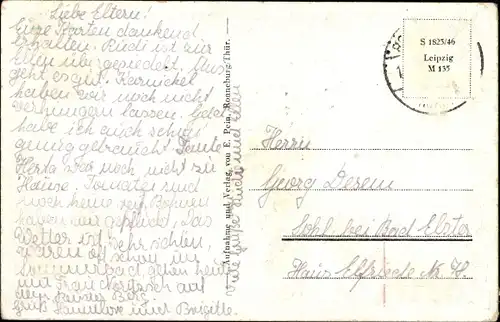 Liebe Eltern!
Eure Karten dankend
erhalten. Rudi ist zur
übergesiedelt. Uns
geht es gut. Karnickel
haben wir noch nicht
lassen. Geld
habe ich auch schon
genug gebraucht. Tante
Herta war noch nicht zu
Hause. Tomaten sind
noch keine reif. Bohnen
haben wir gepflückt. Das
Wetter ist sehr schön,
waren oft schon im
Sommerbad, gehen heute
mit Frau auf
den Berg.
Gruß und Brigitte.
Aufnahme und Verlag, von E. Pein, Ronneburg/Thür.
S 1825/46
Leipzig
M 135
Herrn
Georg Desem
Sohl bei Bad Elster
Haus Elfriede Nr.